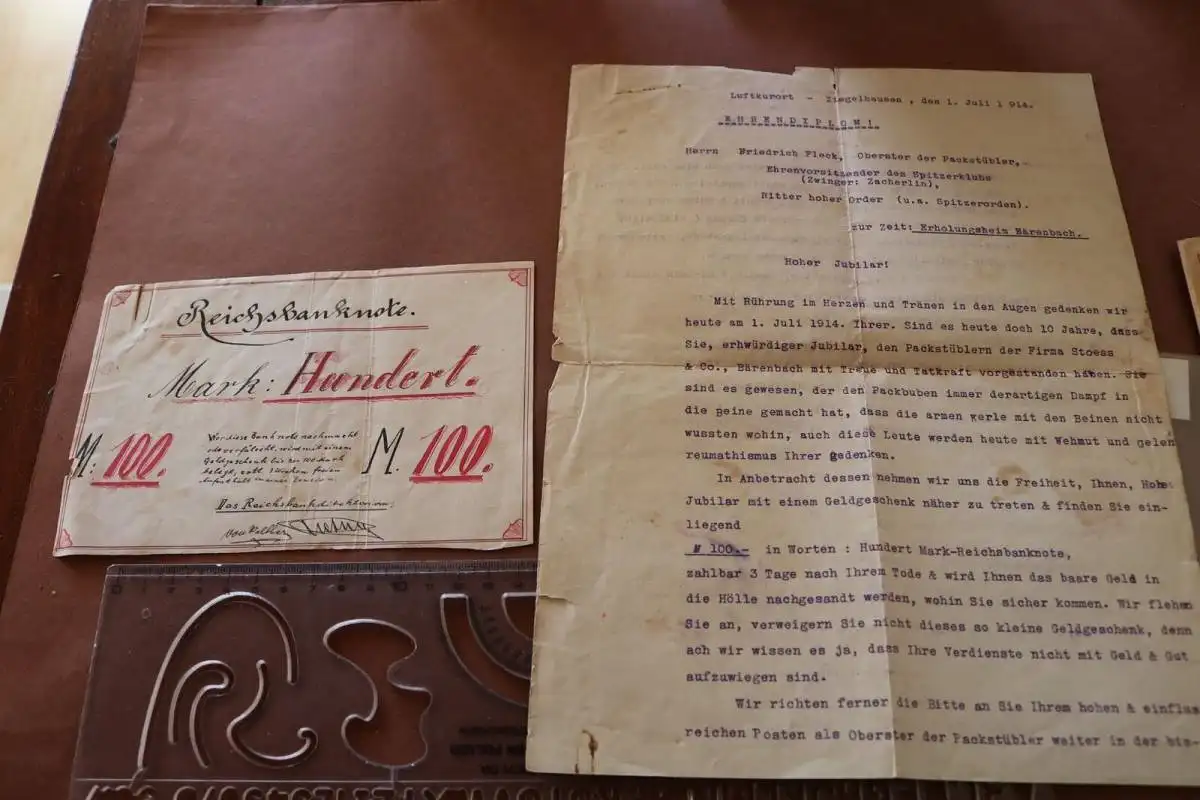 Reichsbanknote.
Mark: Hundert.
M. 100.
Wer diese Banknote nachmacht
oder verfälscht, wird mit einem
Geldgeschenk bis zu 100 Mark
belegt,
M. 100.
Das Reichsbankdirektorium.
Luftkurort - Ziegelhausen, den 1. Juli 1914.
EHRENDIPLOM!
Herrn Friedrich Fleck, Oberster der Packstübler,
Ehrenvorsitzender des Spitzerklubs
(Zwinger: Zacherlin),
Ritter hoher Order (u.a. Spitzerorden).
zur Zeit: Erholungsheim Bärenbach.
Hoher Jubilar!
Mit Rührung im Herzen und Tränen in den Augen gedenken wir
heute am 1. Juli 1914. Ihrer. Sind es heute doch 10 Jahre, dass
Sie, erhwürdiger Jubilar, den Packstüblern der Firma Stoess
& Co., Bärenbach mit Treue und Tatkraft vorgestanden haben. Sie
sind es gewesen, der den Packbuben immer derartigen Dampf in
die Beine gemacht hat, dass die armen Kerle mit den Beinen nicht
wussten wohin, auch diese Leute werden heute mit Wehmut und gelen
reumathismus Ihrer gedenken.
In Anbetracht dessen nehmen wir uns die Freiheit, Ihnen, Hoher
Jubilar mit einem Geldgeschenk näher zu treten & finden Sie ein-
liegend
M 100.- in Worten : Hundert Mark-Reichsbanknote,
zahlbar 3 Tage nach Ihrem Tode & wird Ihnen das baare Geld in
die Hölle nachgesandt werden, wohin Sie sicher kommen. Wir flehen
Sie an, verweigern Sie nicht dieses so kleine Geldgeschenk, denn
ach wir wissen es ja, dass Ihre Verdienste nicht mit Geld & Gut
aufzuwiegen sind.
Wir richten ferner die Bitte an Sie Ihrem hohen & einflus
reichen Posten als Oberster der Packstübler weiter in der bis-